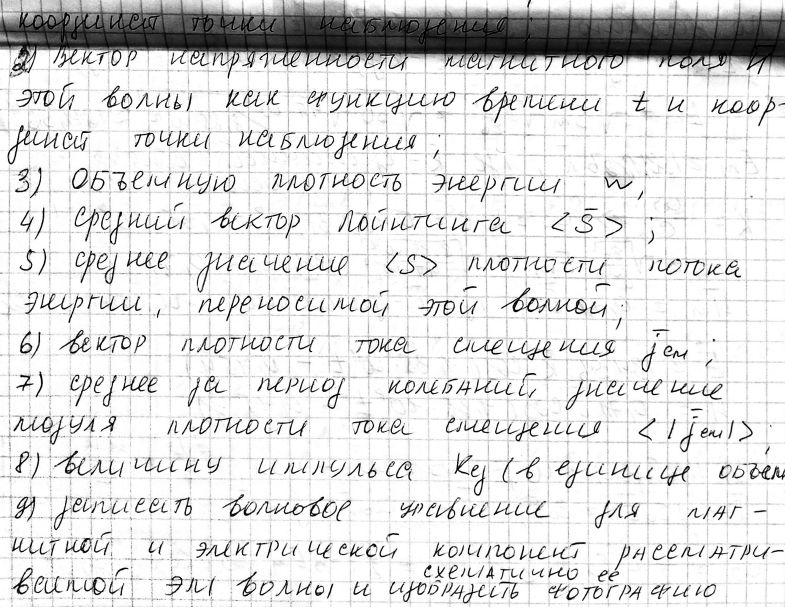 координат точки наблюдения;
2) Вектор напряженности магнитного поля H̄
этой волны как функцию времени t и коор-
динат точки наблюдения;
3) Объемную плотность энергии w,
4) средний вектор Пойнтинга <S̄> ;
5) среднее значение <S> плотности потока
энергии, переносимой этой волной;
6) вектор плотности тока смещения j̄см ;
7) среднее за период колебаний, значение
модуля плотности тока смещения <|j̄см|>;
8) величину импульса Kед (в единице объем
9) записать волновое уравнение для маг-
нитной и электрической компонент рассматри-
ваемой эм волны и схематично изобразить её фотографию